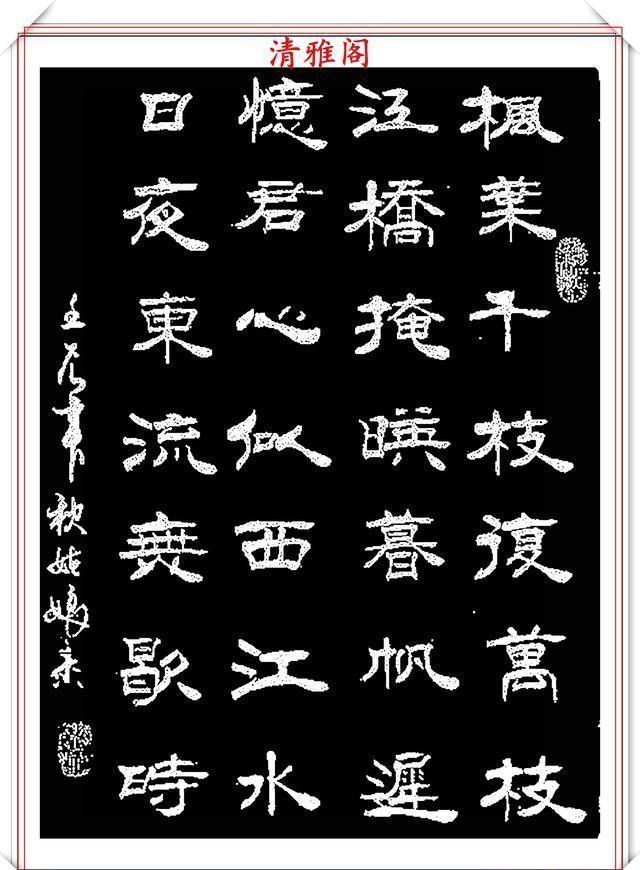 清雅阁
楓葉千枝復萬枝
江橋掩暎暮帆遲
憶君心似西江水
日夜東流無歇時
書秋姑娘